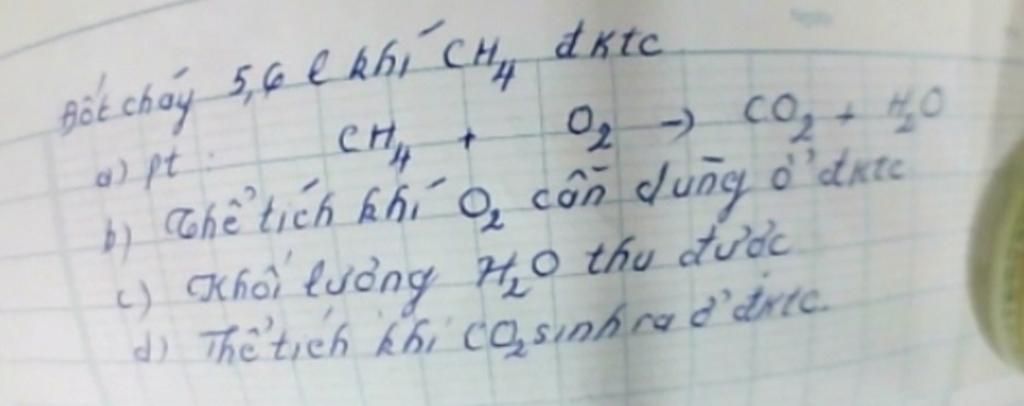 Đốt cháy 5,6 l khí CH₄ đktc
a) pt : CH₄ + O₂ → CO₂ + H₂O
b) Thể tích khí O₂ cần dùng ở đktc
c) Khối lượng H₂O thu được
d) Thể tích khí CO₂ sinh ra ở đktc.